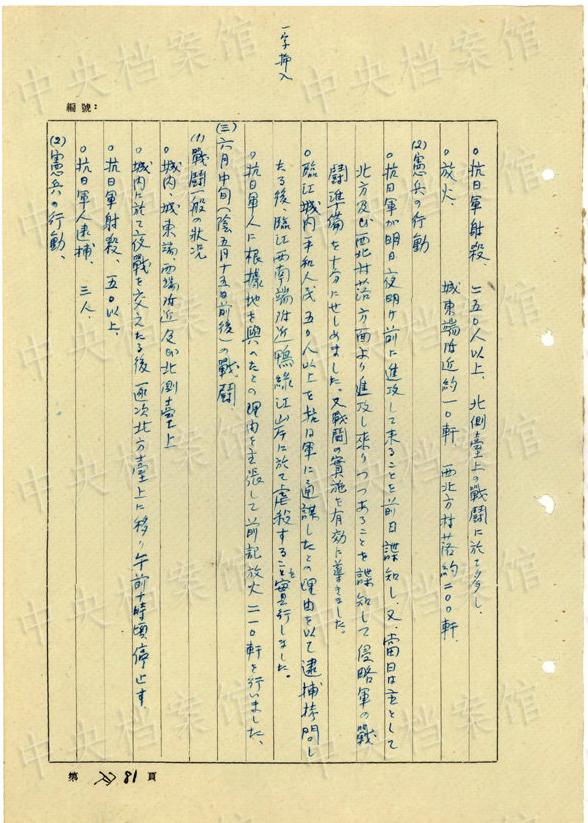 一字挿入
編號：
○抗日軍射殺、二五〇人以上、北側臺上の戰鬪に於て多し、
○放火、城東端附近約一〇軒 西北方村落約二〇〇軒、
(2)憲兵の行動
○抗日軍が明日夜明け前に進攻して来ることを前日諜知し又、當日は主として
北方及び西北村落方面より進攻し来りつつあることを諜知して侵略軍の戰
鬪準備を十分にせしめました。又戰鬪の實施を有効に導きました。
○臨江城内平和人民五〇人以上を抗日軍に通謀したとの理由を以て逮捕拷問し
たる後臨江西南端附近鴨綠江山岸に於て虐殺することを實行しました。
○抗日軍人に根據地を與へたとの理由を主張して前記放火二一〇軒を行いました、
(三)六月中旬(陰五月十五日前後)の戰鬪
(1)戰鬪一般の狀况
○城内、城東端西端附近及び北側臺上
○城内に於て夜戰を交えたる後逐次北方臺上に移り午前十時頃停止す
○抗日軍射殺、五〇以上、
○抗日軍人逮捕、三人、
(2)憲兵の行動、
第 81 頁
中央档案馆